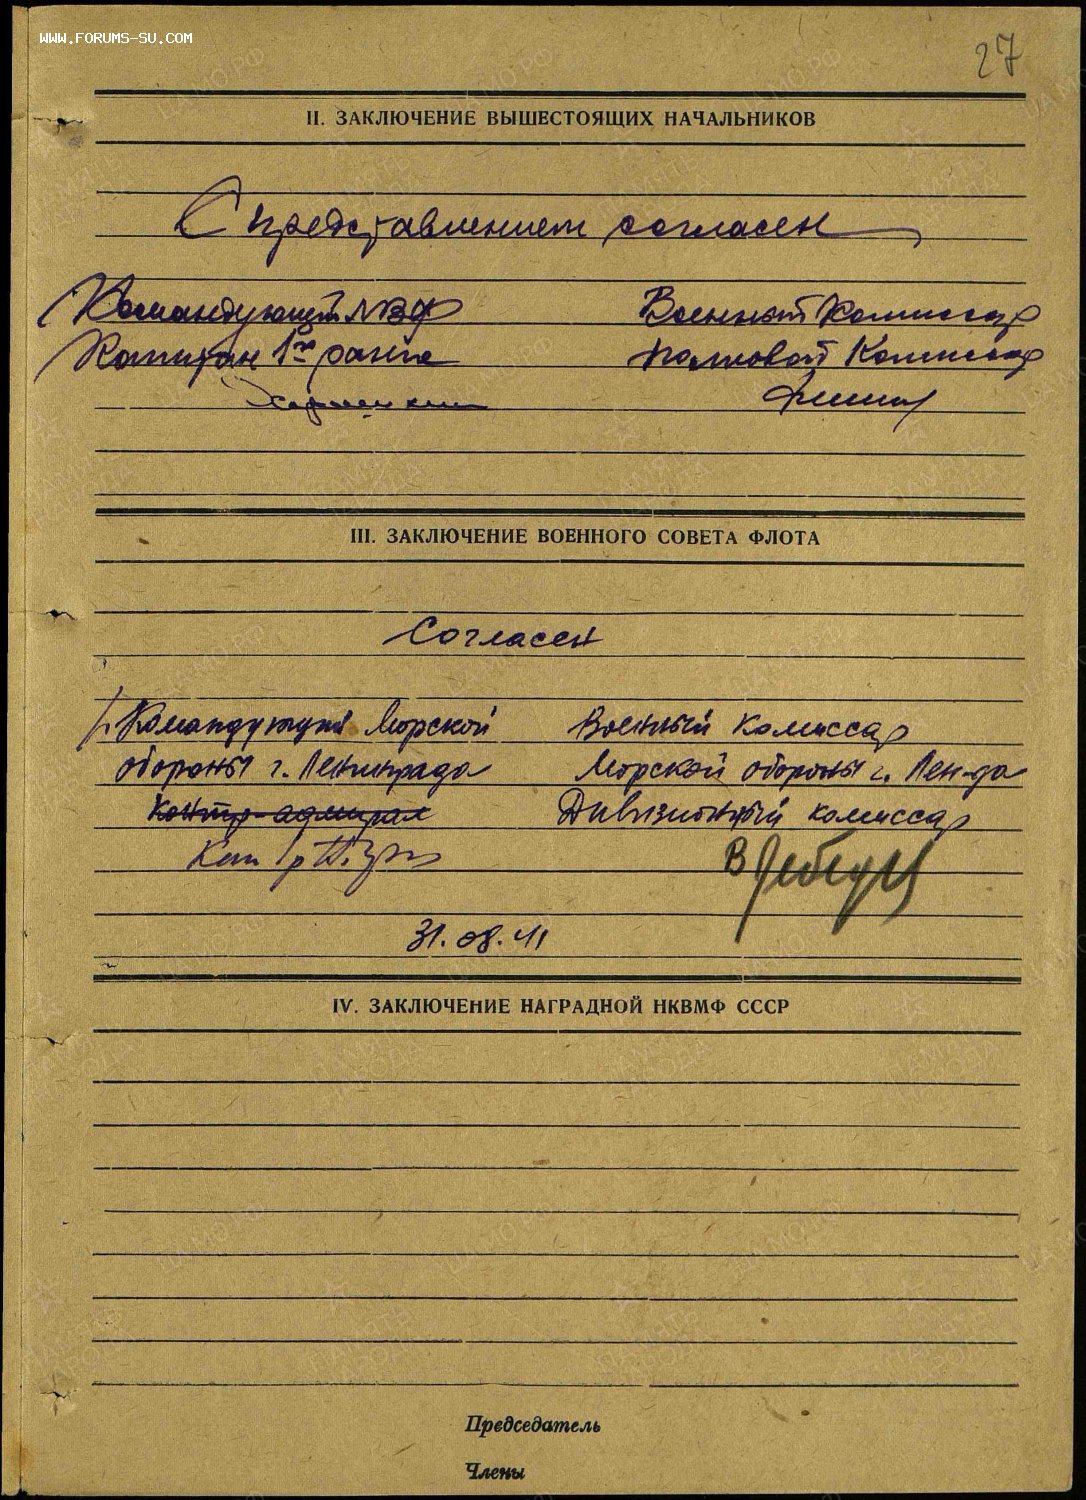 WWW.FORUMS-SU.COM
27
II. ЗАКЛЮЧЕНИЕ ВЫШЕСТОЯЩИХ НАЧАЛЬНИКОВ
С представлением согласен
Командующий
Военный Комиссар
Капитан 1го ранга
полковой Комиссар
III. ЗАКЛЮЧЕНИЕ ВОЕННОГО СОВЕТА ФЛОТА
Согласен
Командующий Морской
Военный комиссар
обороны г. Ленинграда
Морской обороны г. Лен-да
контр-адмирал
Дивизионный комиссар
31.08.41
IV. ЗАКЛЮЧЕНИЕ НАГРАДНОЙ НКВМФ СССР
Председатель
Члены